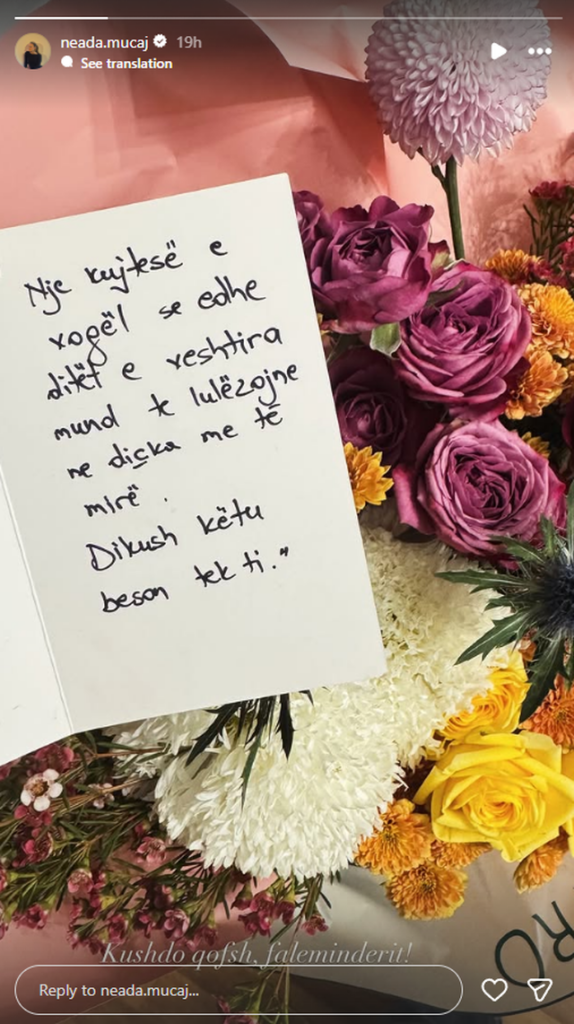 neada.mucaj 19h
See translation
Një kujtesë e
vogël se edhe
ditët e veshtira
mund te lulëzojne
ne diçka me të
mirë.
Dikush këtu
beson tek ti."
Kushdo qofsh, faleminderit!
RO
Reply to neada.mucaj...